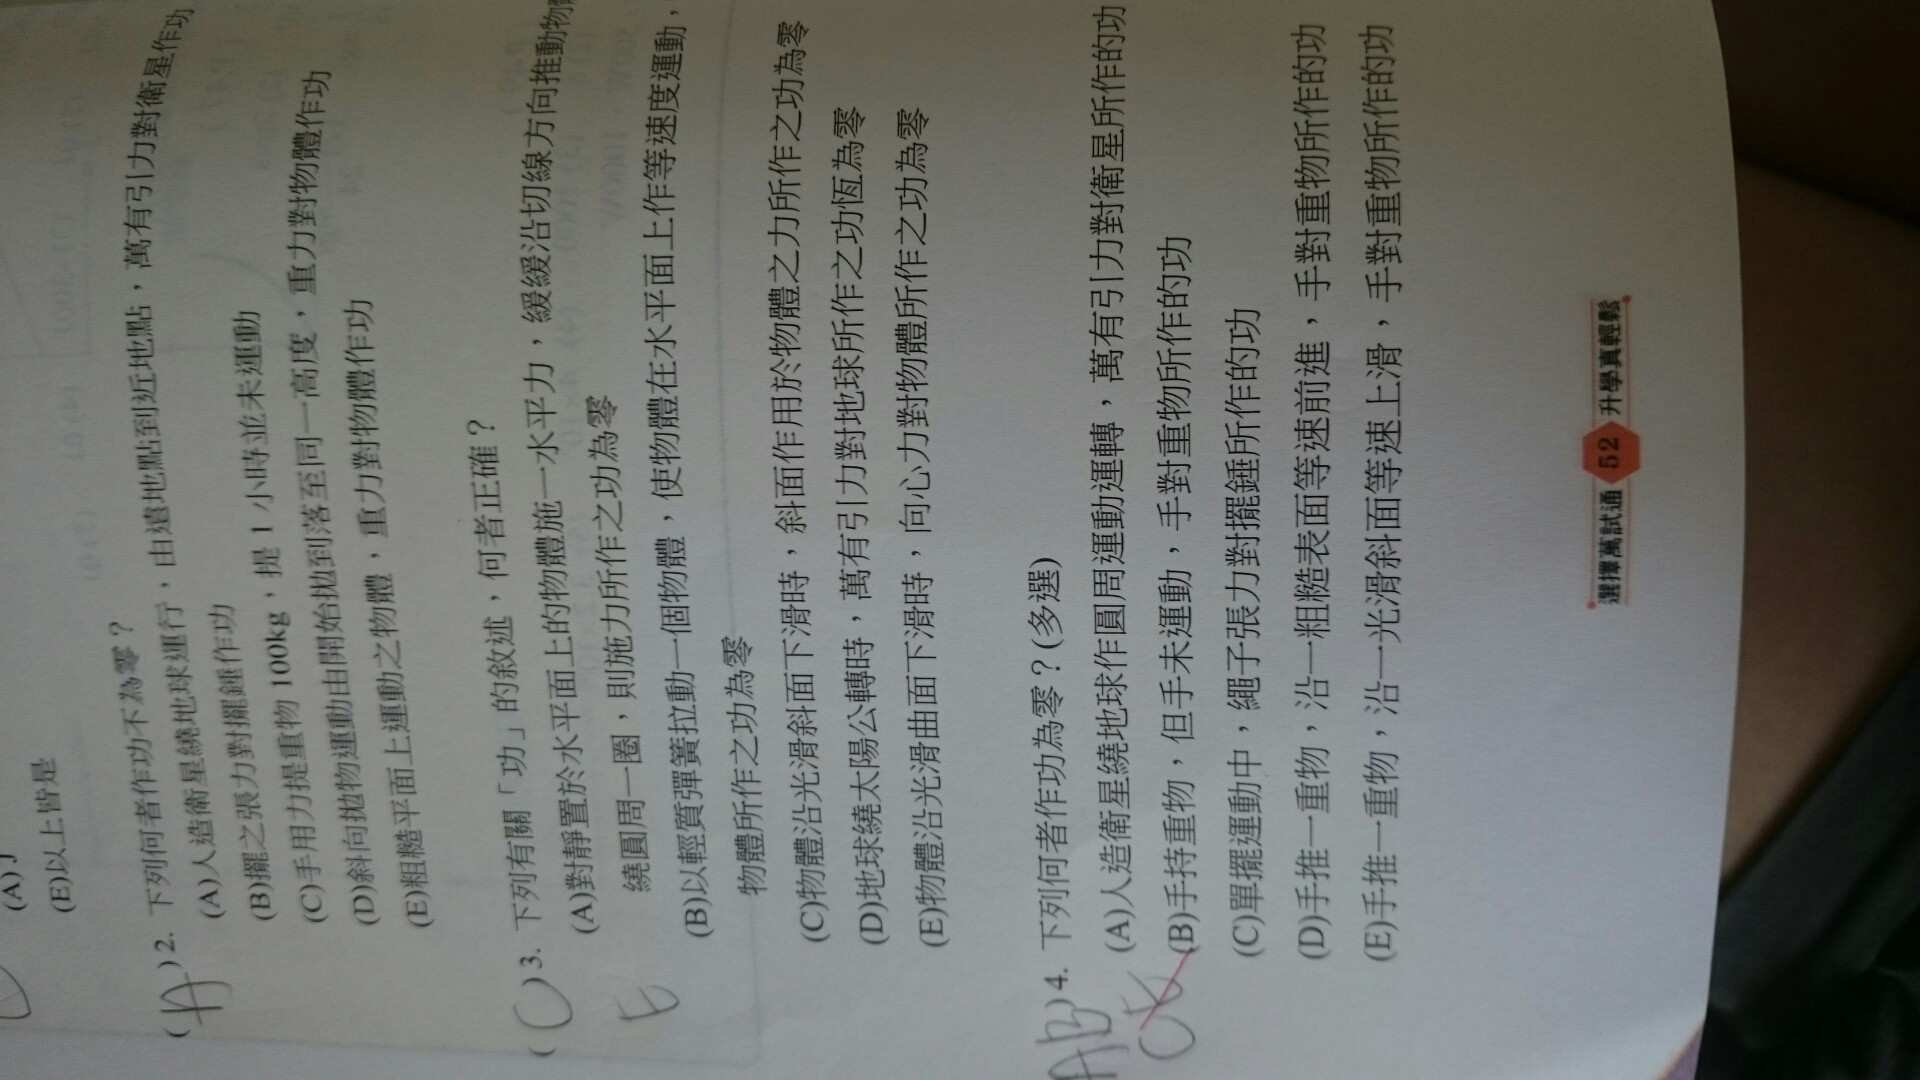 (A)
(E)以上皆是
(A)2. 下列何者作功不為零？
(A)人造衛星繞地球運行，由遠地點到近地點，萬有引力對衛星作功
(B)擺之張力對擺錘作功
(C)手用力提重物100kg，提1小時並未運動
(D)斜向拋物運動由開始拋到落至同一高度，重力對物體作功
(E)粗糙平面上運動之物體，重力對物體作功
(C)3. 下列有關「功」的敘述，何者正確？
E
(A)對靜置於水平面上的物體施一水平力，緩緩沿切線方向推動物
繞圓周一圈，則施力所作之功為零
(B)以輕質彈簧拉動一個物體，使物體在水平面上作等速度運動，
物體所作之功為零
(C)物體沿光滑斜面下滑時，斜面作用於物體之力所作之功為零
(D)地球繞太陽公轉時，萬有引力對地球所作之功恆為零
(E)物體沿光滑曲面下滑時，向心力對物體所作之功為零
(AB)4. 下列何者作功為零？(多選)
C
(A)人造衛星繞地球作圓周運動運轉，萬有引力對衛星所作的功
(B)手持重物，但手未運動，手對重物所作的功
(C)單擺運動中，繩子張力對擺錘所作的功
(D)手推一重物，沿一粗糙表面等速前進，手對重物所作的功
(E)手推一重物，沿一光滑斜面等速上滑，手對重物所作的功
選擇萬試通 52 升學真輕鬆